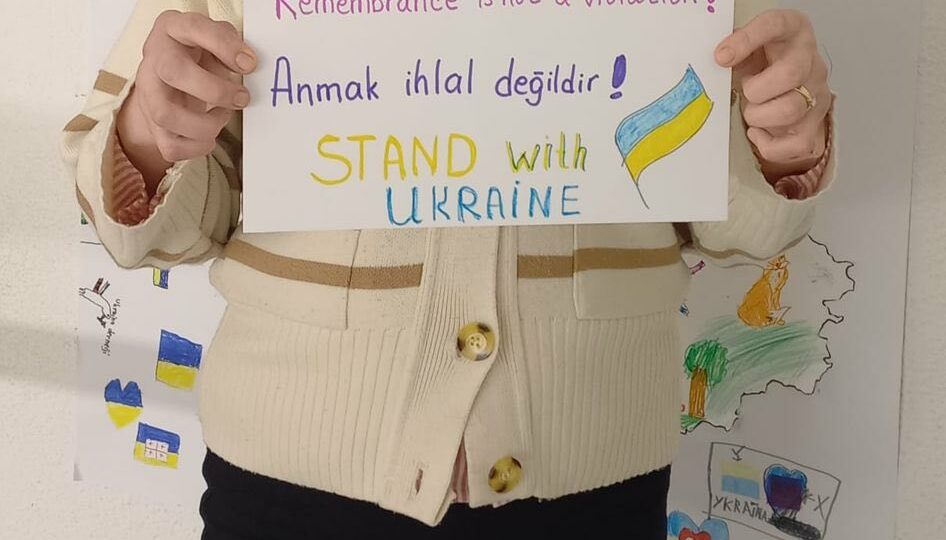 Remembrance is not a violation!
Anmak ihlal değildir!
STAND with
UKRAINE
УКРАЇНА